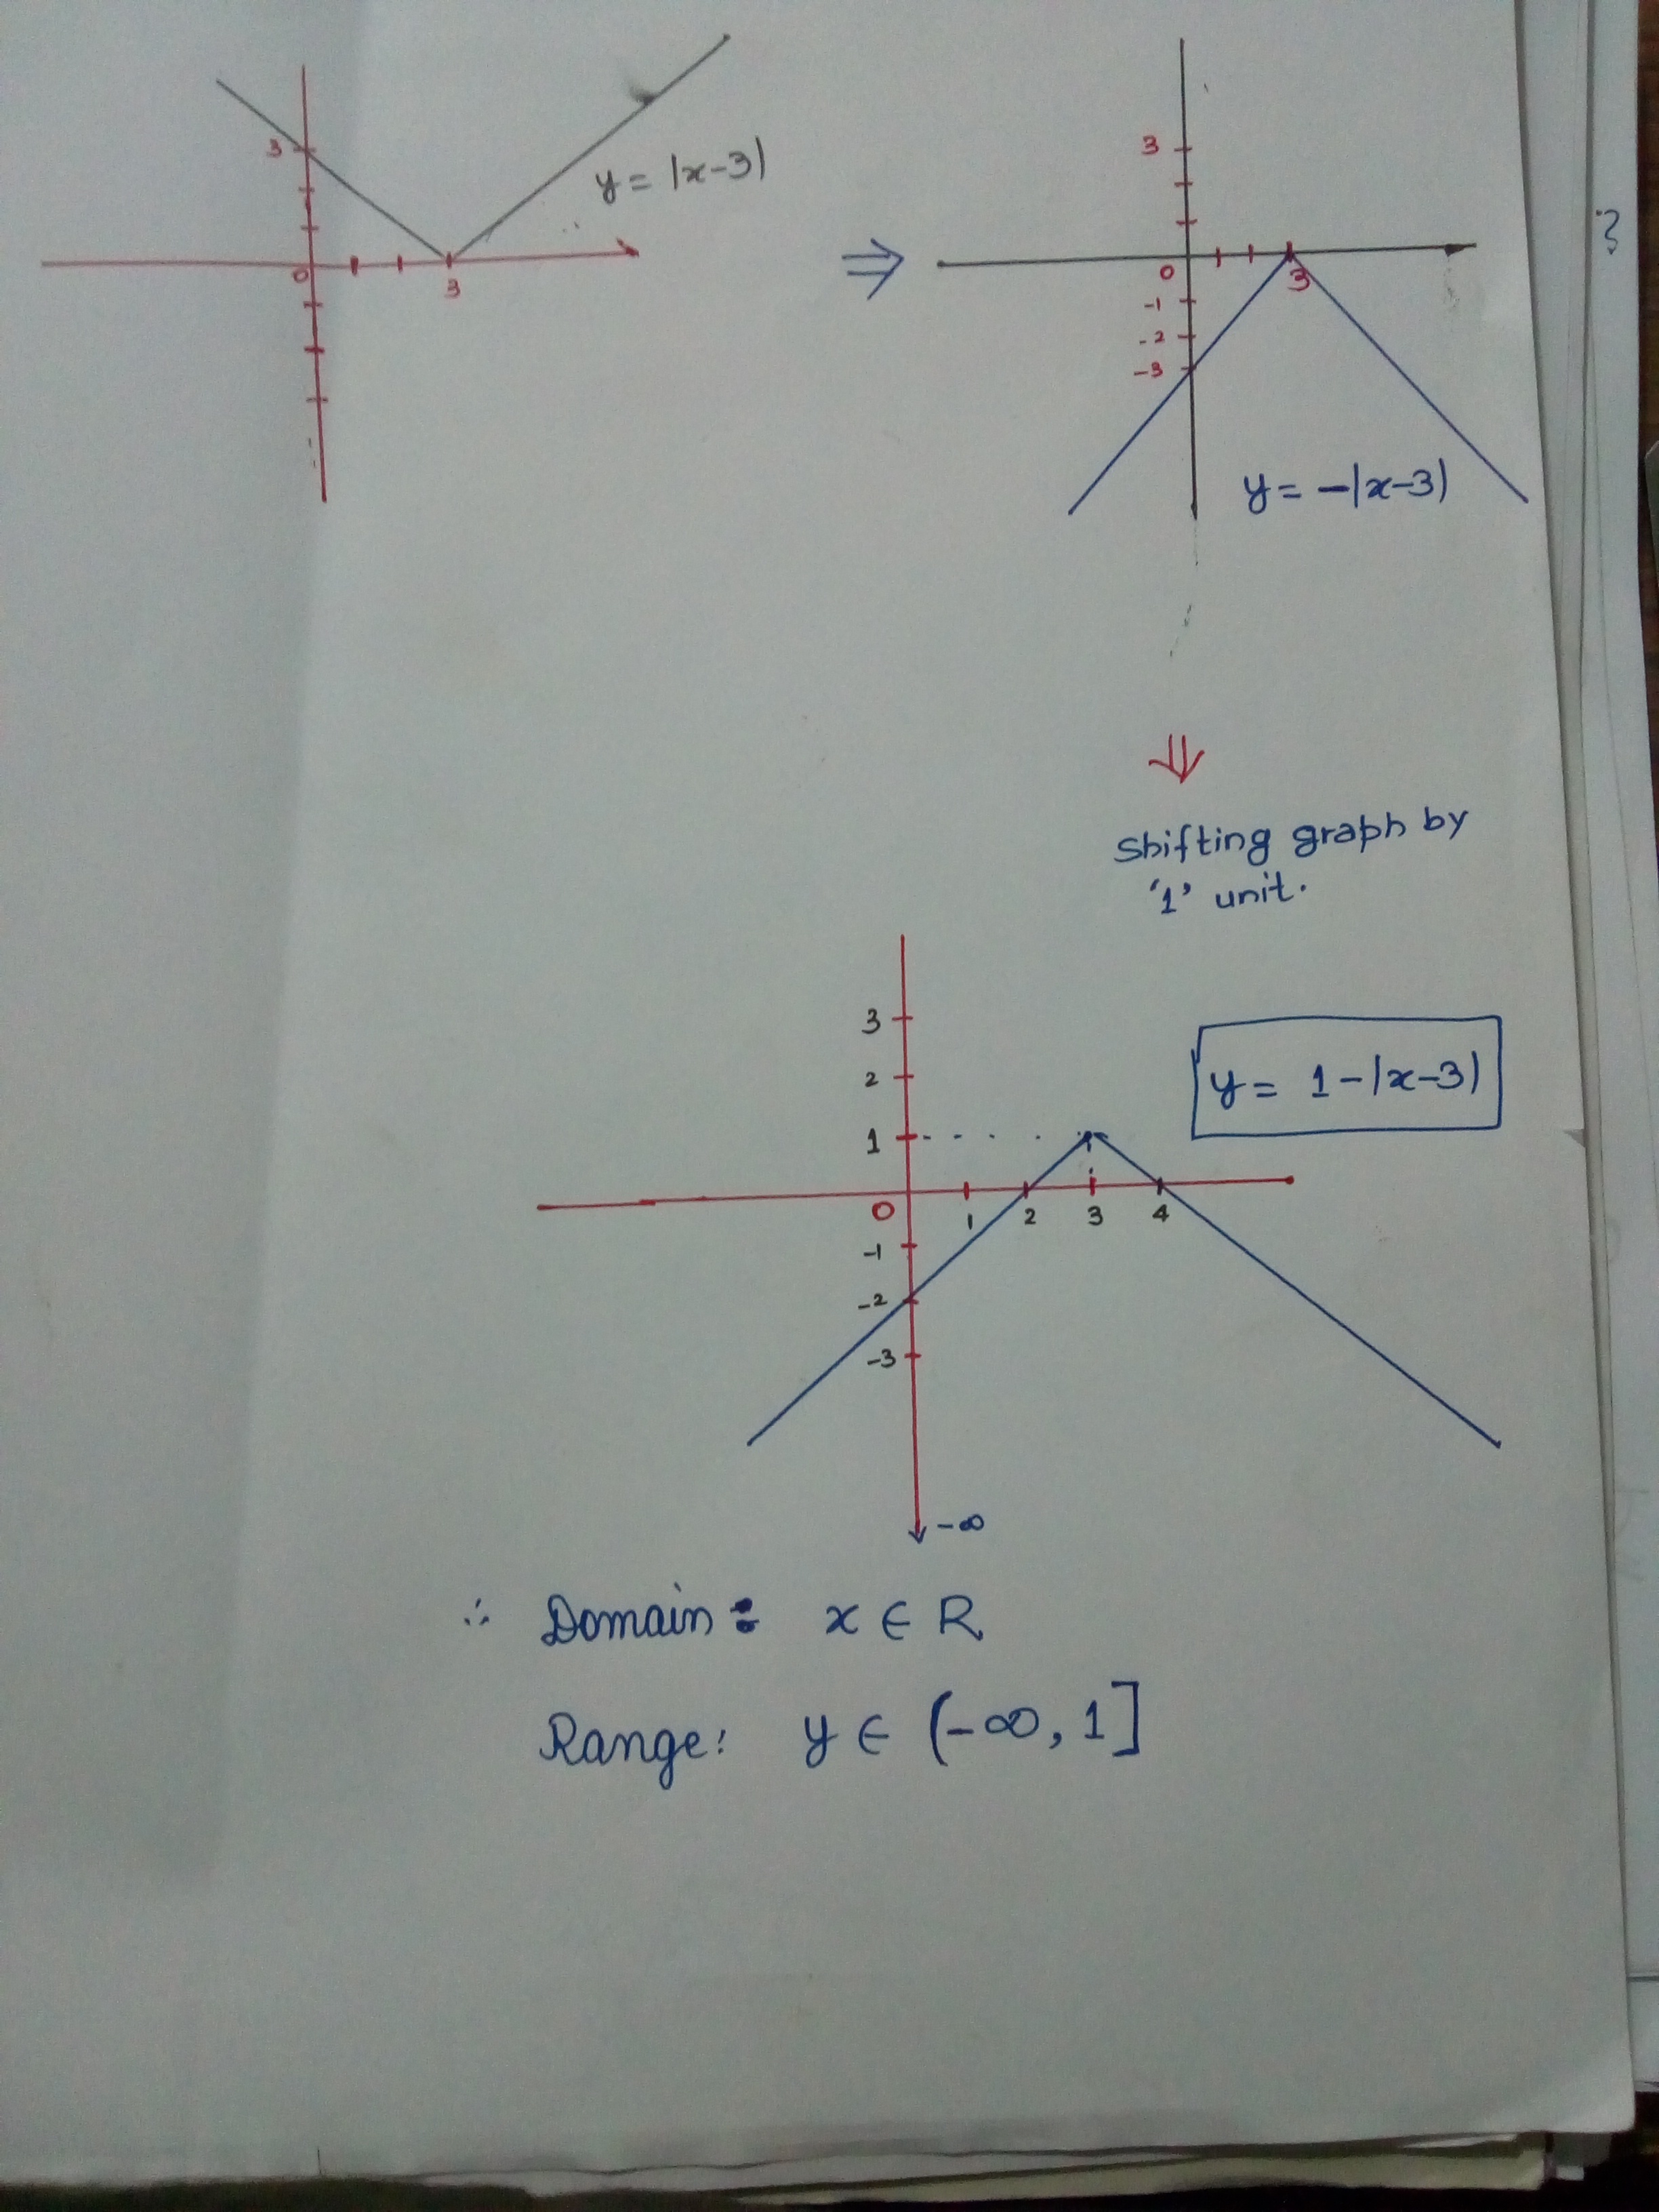 3
0
3
y = |x-3|
⇒
3
0
3
-1
-2
-3
y = -|x-3|
⇓
Shifting graph by
'1' unit.
3
2
1
y = 1-|x-3|
0
1 2 3 4
-1
-2
-3
-∞
∴ Domain: x ∈ R
Range: y ∈ (-∞, 1]
?